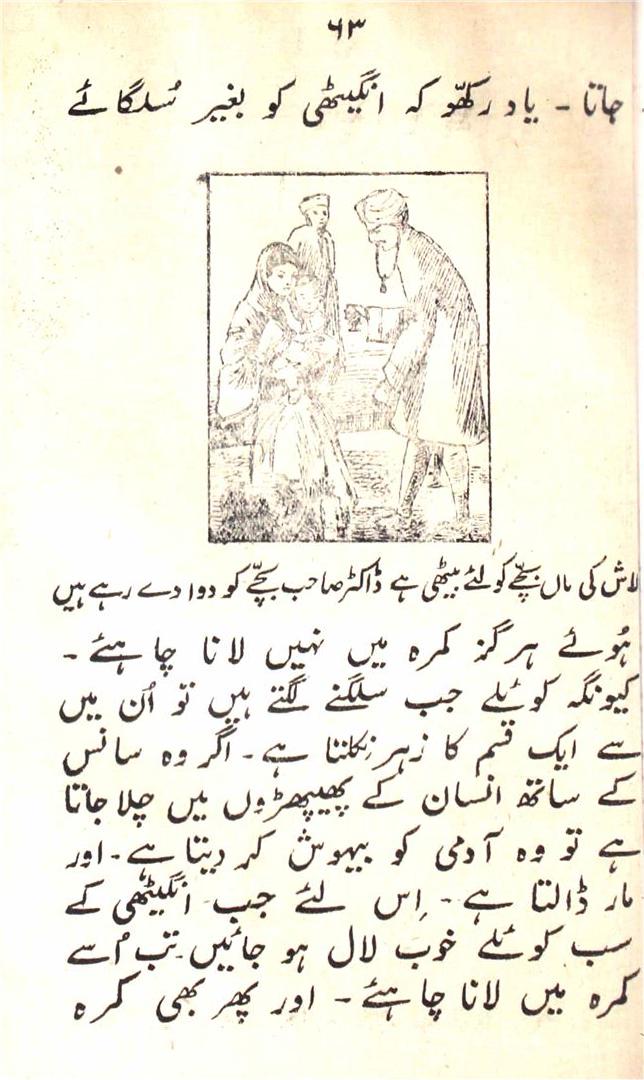 ۶۳
جاتا - یاد رکھّو کہ انگیٹھی کو بغیر سُلگائے
لاش کی ماں بچّے کو لئے بیٹھی ہے ڈاکٹر صاحب بچّے کو دوا دے رہے ہیں
ہُوئے ہرگز کمرہ میں نہیں لانا چاہئے -
کیونکہ کوئلے جب سلگنے لگتے ہیں تو اُن میں
سے ایک قسم کا زہر نِکلتا ہے - اگر وہ سانس
کے ساتھ انسان کے پھیپھڑوں میں چلا جاتا
ہے تو وہ آدمی کو بیہوش کر دیتا ہے - اور
مار ڈالتا ہے - اِس لئے جب انگیٹھی کے
سب کوئلے خوب لال ہو جائیں - تب اُسے
کمرہ میں لانا چاہئے - اور پھر بھی کمرہ